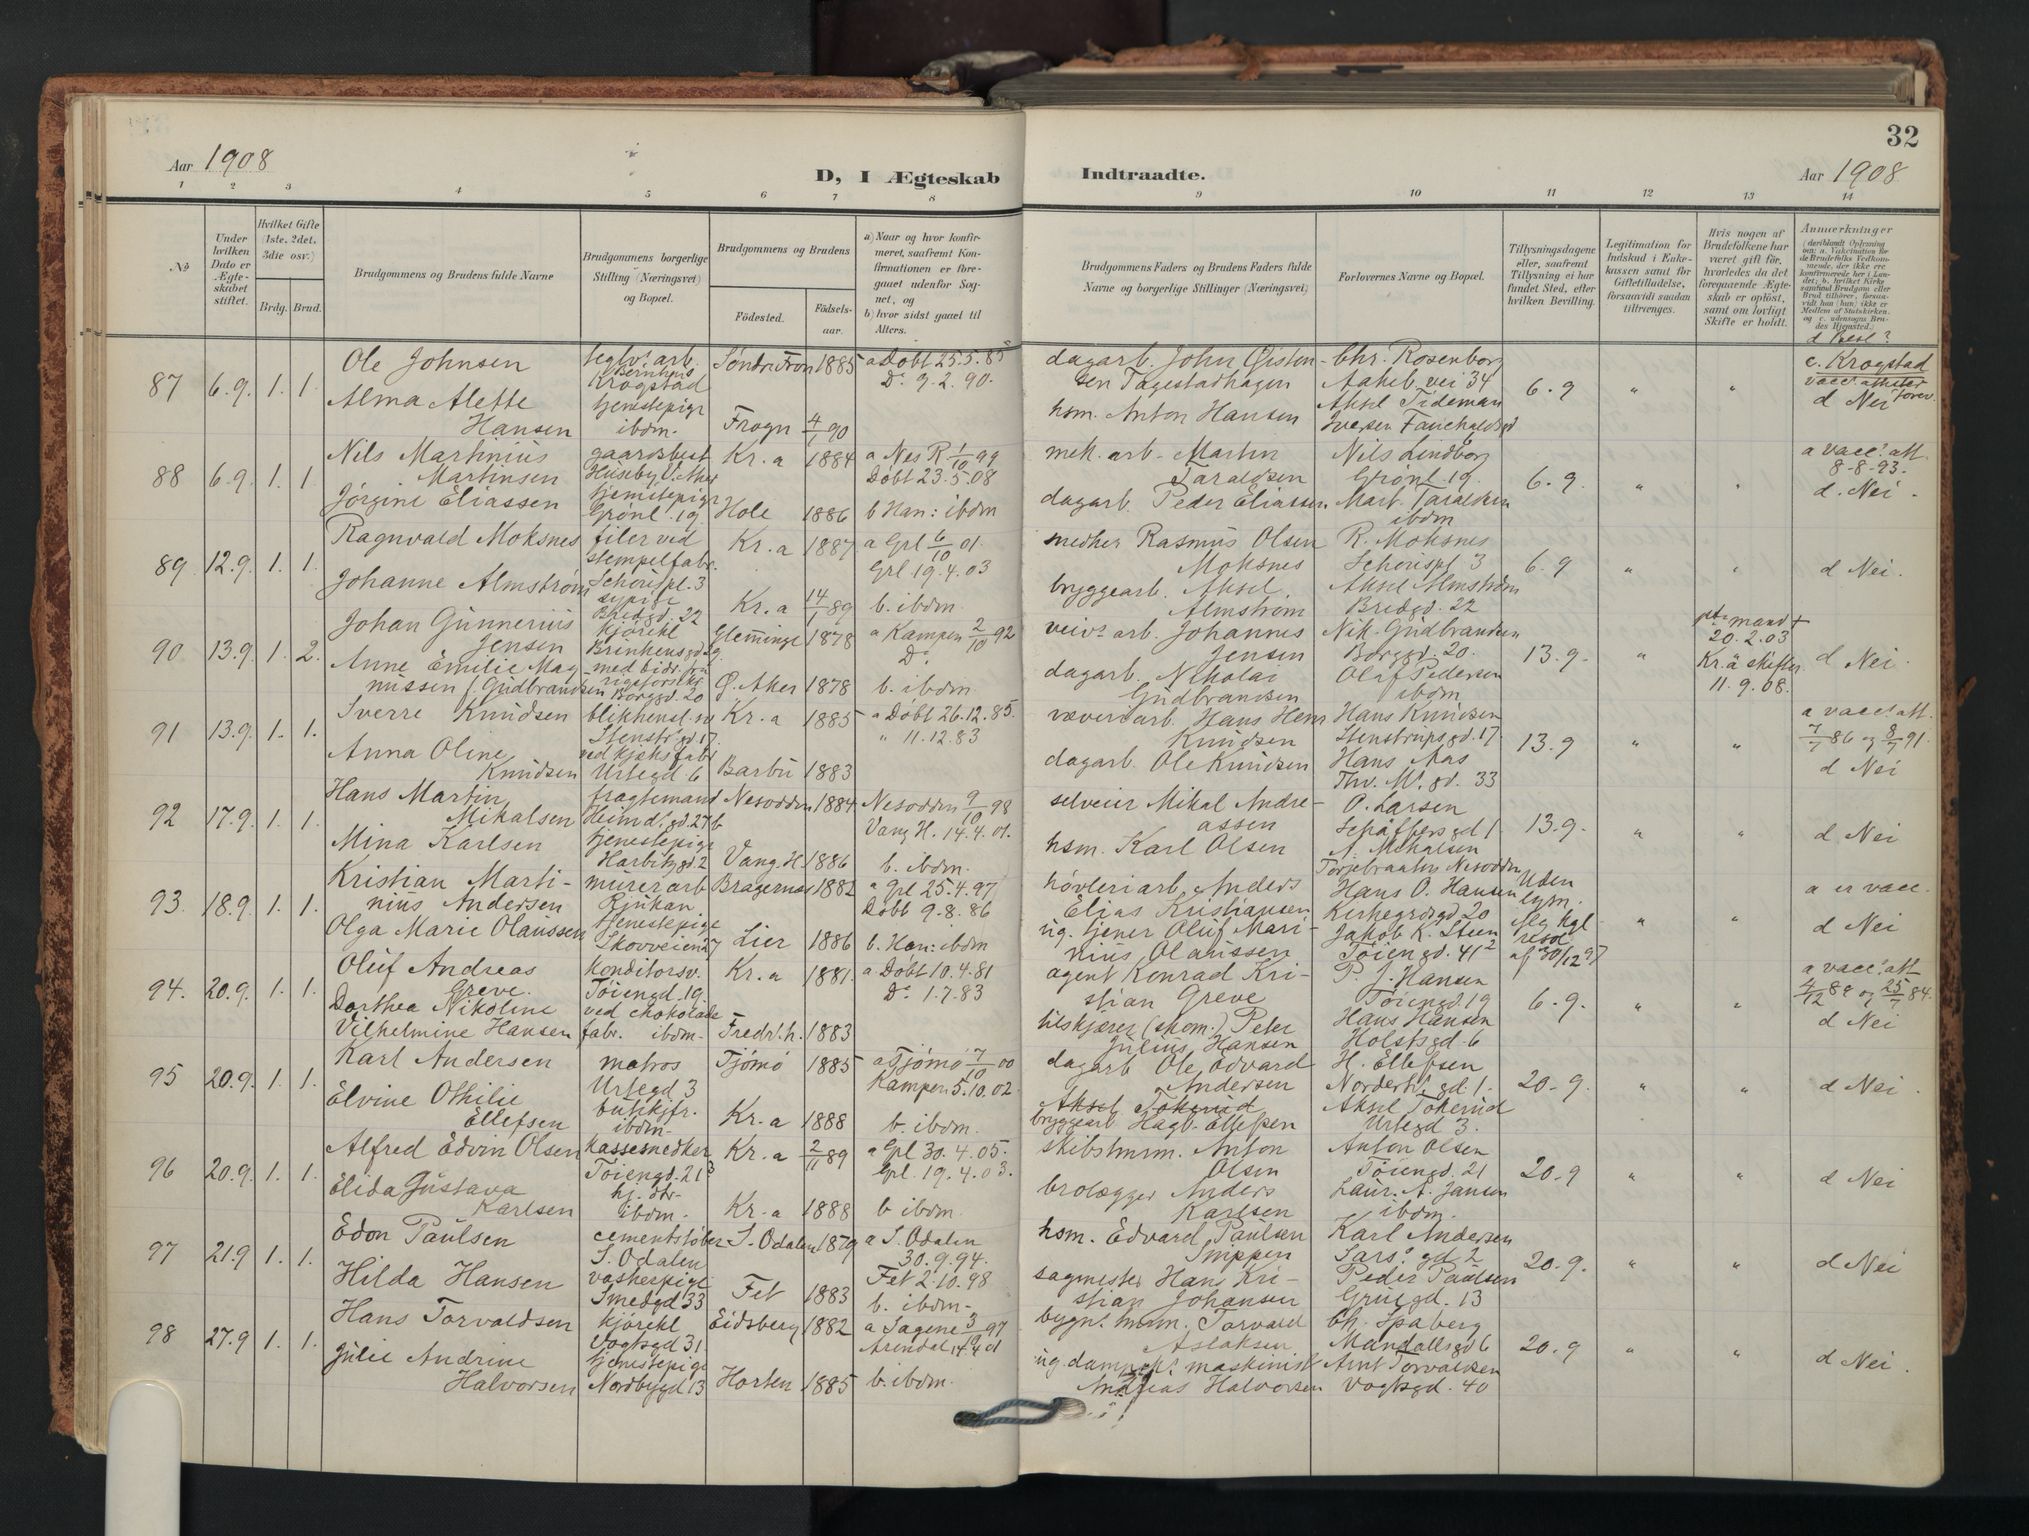 Aar 1908
D, I Ægteskab
1 2 3 4 5 6 7 8
№
Under hvilken Dato er Ægteskabet stiftet.
Hvilket Gifte (1ste. 2det. 3die osv.)
Brdg. Brud.
Brudgommens og Brudens fulde Navne
Brudgommens borgerlige Stilling (Næringsvei) og Bopæl.
Brudgommens og Brudens
Fødested. Fødselsaar.
a) Naar og hvor konfirmeret, saafremt Konfirmationen er foregaaet udenfor Sognet, og
b) hvor sidst gaaet til Alters.
87 6.9. 1. 1.
Ole Johnsen
Krogstad
1885 a Døbt 25.5.85
D° 9.2.90.
Alma Alette
Hansen
tjenestepige
ibdm.
Frogn 4/1 90
88 6.9. 1. 1.
Nils Martinius
Martinsen
Kr.a 1884
a Nes R. 1/10 99
Døbt 23.5.08
Jørgine Eliassen
tjenestepige
Grønl. 19.
Hole 1886 b Han: ibdm
89 12.9. 1. 1.
Ragnvald Moksnes
filer ved
stempelfabr.
Kr.a 1887 a Grl 6/10 01.
Grl 19.4.03
Johanne Almstrøm
sypige
Bredgd. 22
Kr.a 14/1 89 b. ibdm.
90 13.9. 1. 2.
Johan Gunnerius
Jensen
Glemminge 1878 a Kampen 2/10 92
D°
Anne Emilie Magnussen f. Gudbrandsen
Borggd. 20
Ø. Aker 1878 b. ibdm.
91 13.9. 1. 1.
Sverre Knudsen
Kr.a 1885 a Døbt 26.12.85.
" 11.12.83
Anna Oline
Knudsen
Urtegd 6
Barbu 1883
92 17.9. 1. 1.
Hans Martin
Mikalsen
fragtemand
Nesodden 1884 Nesodden 9/10 98
Vang H. 14.4.01.
Mina Karlsen
tjenestepige
Vang. H. 1886 b. ibdm.
93. 18.9. 1. 1.
Kristian Martinius Andersen
murerarb
Rjukan
Bragernes 1882
a Gpl 25.4.97
Døbt 9.8.86
Olga Marie Olaussen
tjenestepige
Skovveien 27
Lier 1886 b. Han: ibdm
94. 20.9. 1. 1.
Oluf Andreas
Greve.
konditorsv.
Tøiengd. 19.
Kr.a 1881. a Døbt 10.4.81
D° 1.7.83
Dorthea Nikoline
Vilhelmine Hansen
ved chokolade
fabr. ibdm.
Fredr.h. 1883
95 20.9. 1. 1.
Karl Andersen
matros
Urtegd 3
Tjømø 1885 a Tjømø 7/10 00
Kampen 5.10.02.
Elvine Othilie
Ellefsen
butikjfr.
ibdm.
Kr.a 1888 b. ibdm.
96 20.9. 1. 1.
Alfred Edvin Olsen
kassesmedker
Tøiengd. 21
Kr.a 2/11 89 a Gpl 30.4.05.
Gpl. 19.4.03.
Elida Gustava
Karlsen
ibdm.
Kr.a 1888 b ibdm.
97 21.9 1. 1.
Edon Paulsen
cementstøber
S. Odalen
S. Odalen 1879 a S. Odalen
30.9.94.
Hilda Hansen
vaskepige
Smedgd 33
Fet 1883
Fet 2.10.98
b. ibdm.
98 27.9 1. 1.
Hans Torvaldsen
kjørekl
Vogtsgd 31
Eidsberg 1882 a Sagene 3/10 97
Arendal 14.4.01
Julie Andrine
Halvorsen
tjenestepige
Nordbygd 13
Horten 1885 b. ibdm.
32
Indtraadte.
Aar 1908.
9 10 11 12 13 14
Brudgommens Faders og Brudens Faders fulde Navne og borgerlige Stillinger (Næringsvei)
Forlovernes Navne og Bopæl.
Tillysningsdagene eller, saafremt Tillysning ei har fundet Sted, efter hvilken Bevilling.
Legitimation for Indskud i Enkekassen samt for Giftetilladelse, forsaavidt saadan tiltrænges.
Hvis nogen af Brudefolkene har været gift før, hvorledes da det foregaaende Ægteskab er opløst, samt om lovligt Skifte er holdt.
Anmærkninger
dagarb. John Øistensen Tagestadhagen
Chr. Rosenborg
Aakeb. vei 34
6.9 " "
c. Krogstad
d Nei
hsm. Anton Hansen
Aksel Tideman
mek. arb. Martin
Taraldsen
Nils Lindborg
Grønl. 19.
6.9. " "
a vacc. att.
8-8-93.
d. Nei.
dagarb. Peder Eliassen
Mart. Taraldsen
ibdm
smedker Rasmus Olsen
Moksnes
R. Moksnes
Schouspl 3
6.9 " "
d Nei.
bryggearb. Aksel
Almstrøm
Aksel Almstrøm
Bredgd. 22
veiv. arb. Johannes
Jensen
Nik. Gudbrandsen
Borggd. 20.
13.9. "
20.2.03
Kr.a skifter.
11.9.08.
d Nei.
dagarb. Nikolai
Gudbrandsen
Olaf Pedersen
ibdm
væveriarb. Hans Hem
Knudsen
Hans Knudsen
Stenstrupsgd. 17.
13.9 " "
a vacc. att.
7/7 86 og 8/7 91.
d Nei
dagarb. Ole Knudsen
Hans Aas
Thv. M. gd. 33
selveier Mikal Andreassen
O. Larsen
13.9. " "
d Nei
hsm. Karl Olsen
A. Mikalsen
høvleriarb. Anders
Elias Kristiansen
Hans O. Hansen
Kirkegrdsgd 20
Uden
lysn.
flg kgl
resol
af 30/12 97
" "
a er vacc.
d Nei
ug. tjener Oluf Marinius Olaussen
Jakob K. Steen
Tøiengd. 41²
agent Konrad Kristian Greve
P. J. Hansen
Tøiengd. 19
6.9. " "
a vacc. att
4/12 89 og 25/7 84.
d Nei
tilskjærer (skom.) Peter
Julius Hansen
Hans Hansen
Holstsgd. 6
dagarb Ole Edvard
Andersen
H. Ellefsen
20.9. " "
d Nei.
Aksel Tokerud
bryggearb Hagb. Ellefsen
Aksel Tokerud
Urtegd 3.
skibstmm. Anton
Olsen
Anton Olsen
Tøiengd. 21
20.9 " "
d Nei
brolægger Anders
Karlsen
Laur. A. Jansen
ibdm.
hsm. Edvard Paulsen
Karl Andersen
Lars. gd 2
20.9. " "
d Nei
sagmester Hans Kristian Johansen
Peder Paulsen
Gruegd. 13
bygn. tmm. Torvald
Aslaksen
Ch. Spaberg
Mandallsgd 6
20.9 " "
d Nei.
ug. dampsk. maskinist
Andreas Halvorsen
Arnt Torvaldsen
Vogtsgd. 40